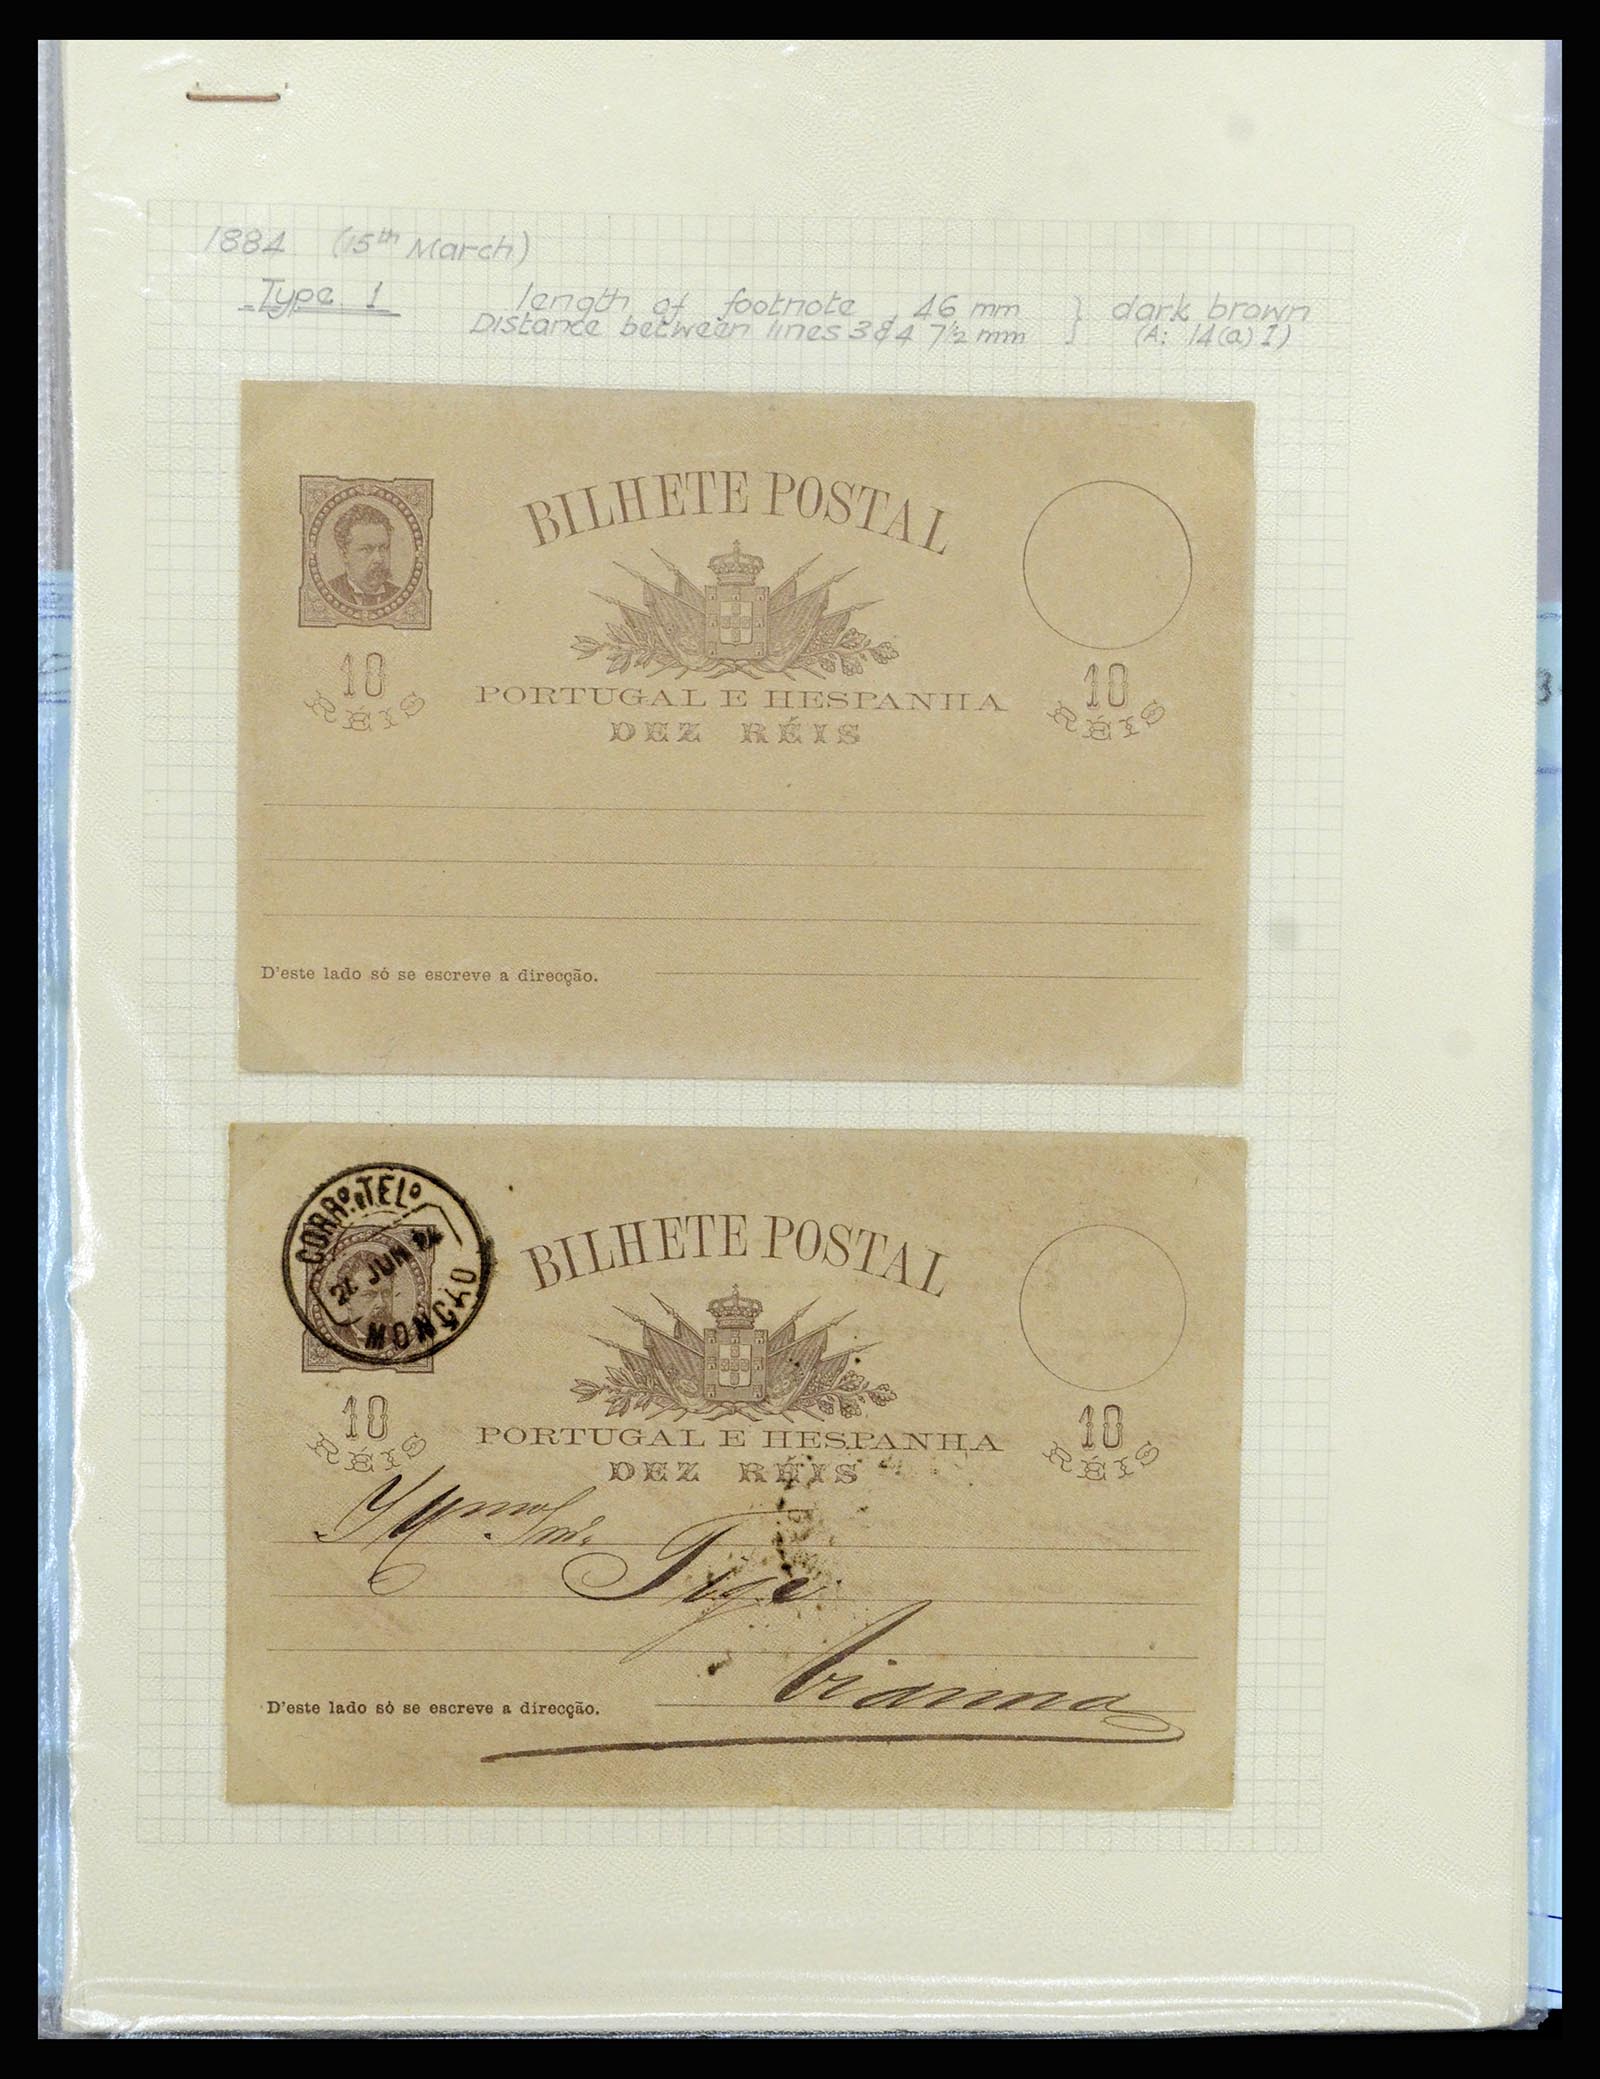 1884 (15th March)
Type 1
length of footnote 46 mm } dark brown
Distance between lines 3&4 7½ mm } (A: 14(a) I)
BILHETE POSTAL
10 RÉIS
PORTUGAL E HESPANHA
DEZ RÉIS
10 RÉIS
D'este lado só se escreve a direcção.
CORRO. TELO
JUN
BILHETE POSTAL
10 RÉIS
PORTUGAL E HESPANHA
DEZ RÉIS
10 RÉIS
Vianna
D'este lado só se escreve a direcção.